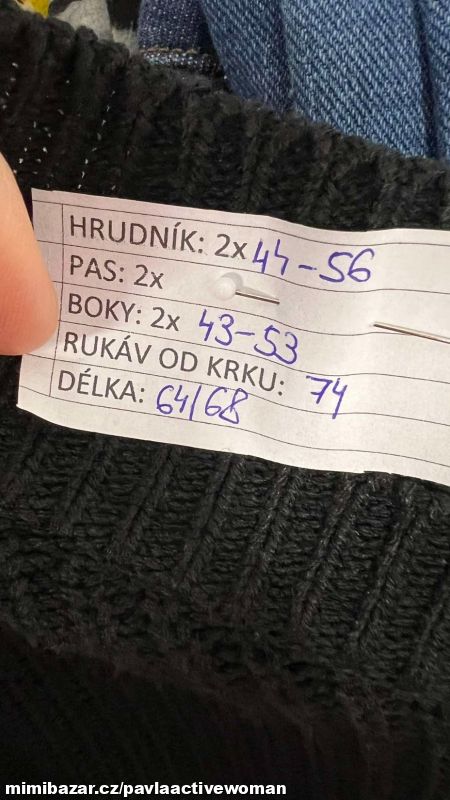 HRUDNÍK: 2x 44-56
PAS: 2x
BOKY: 2x 43-53
RUKÁV OD KRKU: 74
DÉLKA: 64/68
mimibazar.cz/pavlaactivewoman